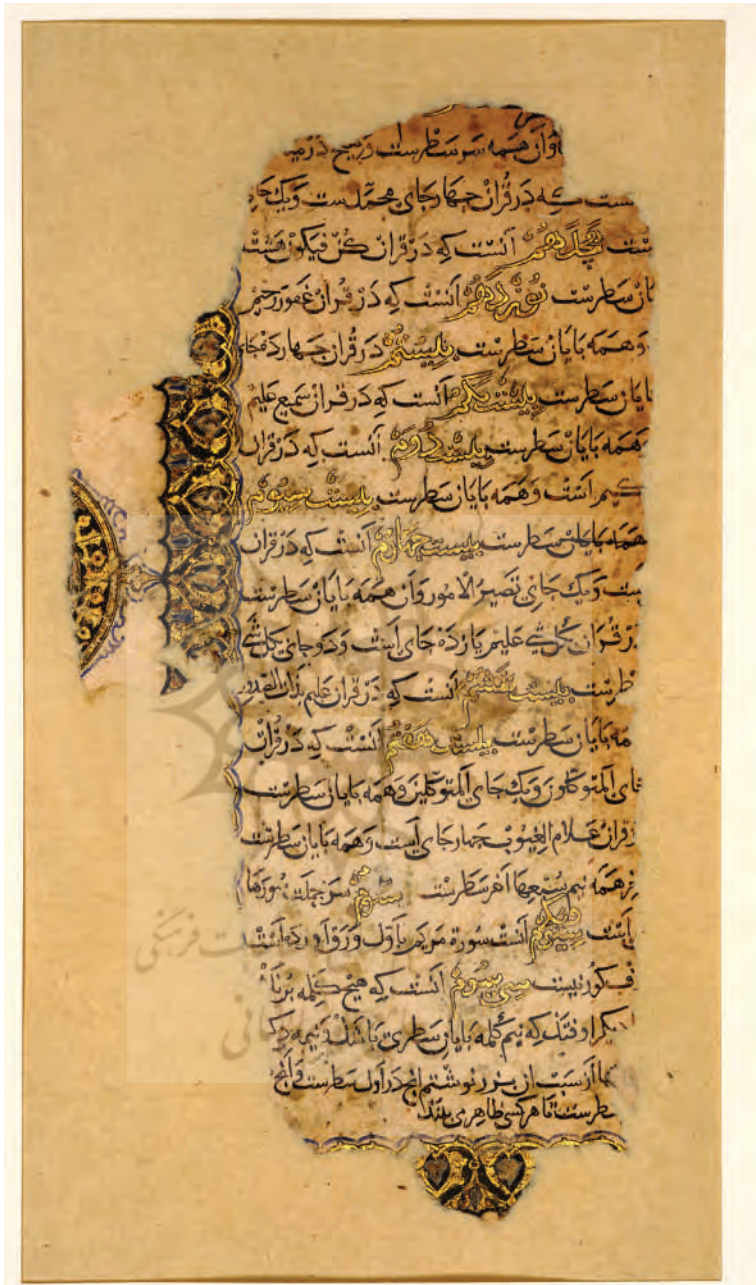 وآن همه سر سطرست و هیچ در می
ست که در قرآن چهار جای محمدست و یک جای
ست هجدهم آنست که در قرآن کن فیکون هشت
بایان سطرست نوزدهم آنست که در قرآن غفور رحیم
و همه بایان سطرست بیستم در قرآن چهارده جای
بایان سطرست بیست یکم آنست که در قرآن سمیع علیم
همه بایان سطرست بیست دوم آنست که در قرآن
است و همه بایان سطرست بیست سوم
همه بایان سطرست بیست چهارم آنست که در قرآن
ست و یک جای تصیر الامور و آن همه بایان سطرست
در قرآن کل شیء علیم یازده جای است و دو جای کل شیء
طرست بیست آنست که در قرآن علیم بذات الصدور
مه بایان سطرست بیست هفتم آنست که در قرآن
جای المتوکلون و یک جای المتوکلین و همه بایان سطرست
در قرآن علام الغیوب چهار جای است و همه بایان سطرست
همه نیم سبعها آخر سطرست سر جملت سورها
است سی یکم آنست سورة مریم باول ورق آورده است
ف کور نیست سی سوم آنست که هیچ کلمه
دیگر اوفتد که نیم کلمه بایان سطری باشد و نیمه دیگر
از سبب آن نوشتم انچ در اول سطرست و انچ
سطرست تا هر کسی ظاهر می بیند